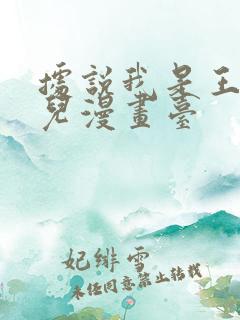 據說我是王
兒漫畫臺
妃緋雪
未經同意禁止轉載